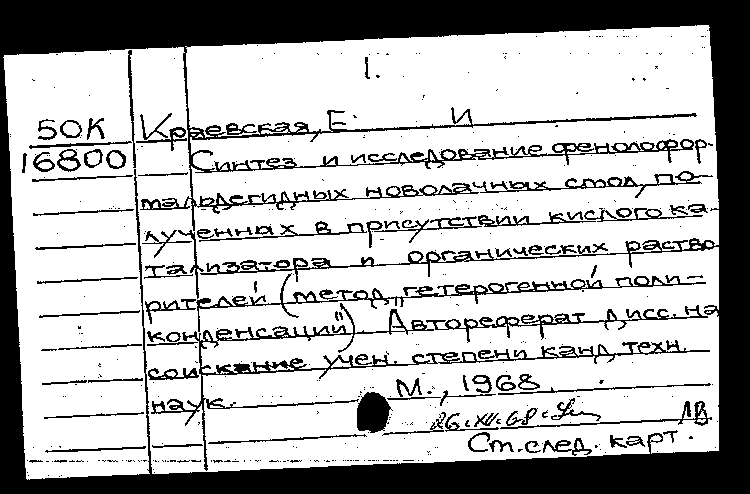 1.
50К Краевская, Е. И
16800 Синтез и исследование фенолофор-
мальдегидных новолачных смол, по-
лученных в присутствии кислого ка-
тализатора и органических раство-
рителей (метод "гетерогенной поли-
конденсаций"). Автореферат дисс. на
соискание учен. степени канд. техн.
наук. М., 1968.
26.XII.68. ЛВ
См. след. карт.